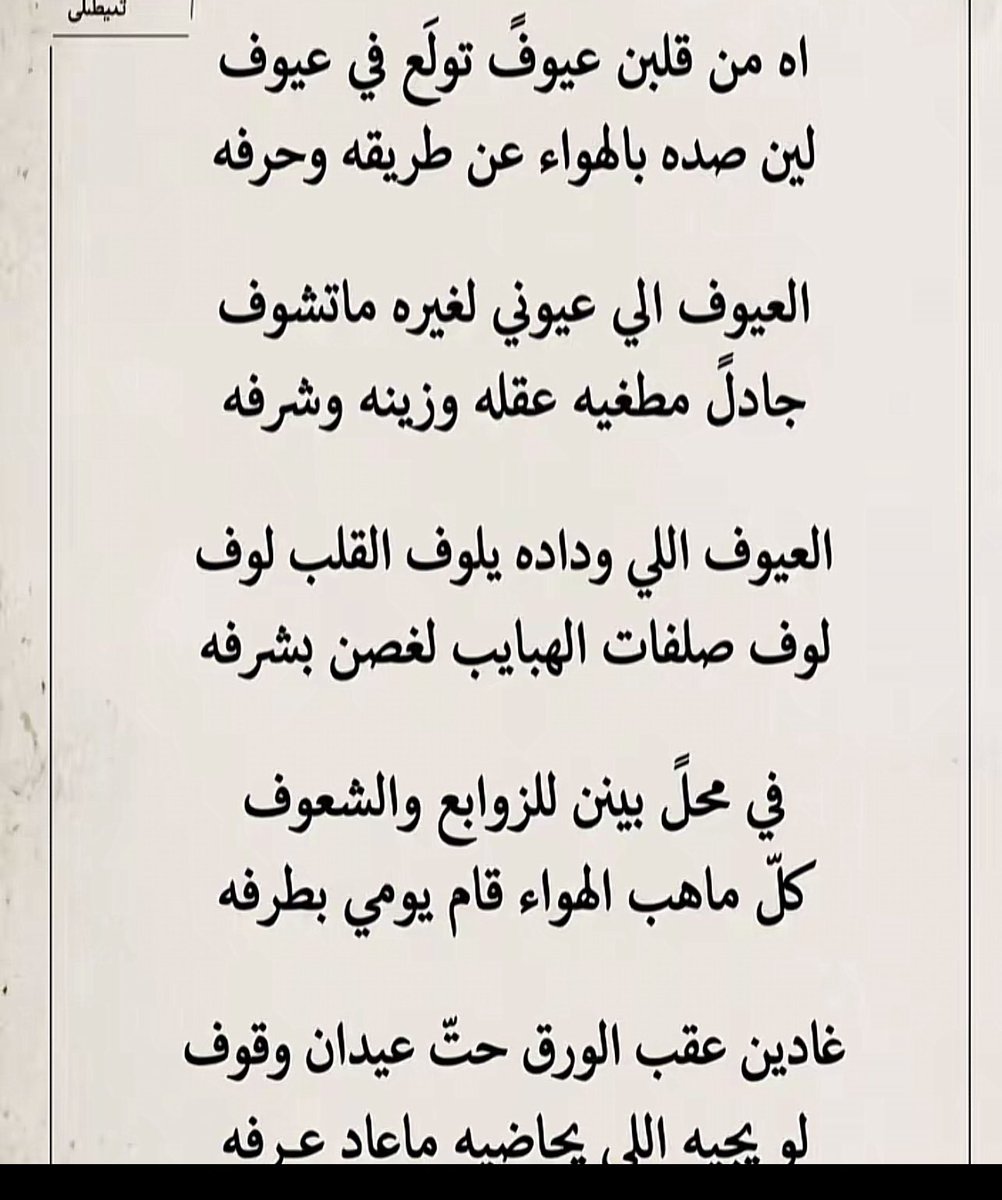 اه من قلبن عيوفً تولَع في عيوف
لين صده بالهواء عن طريقه وحرفه
العيوف الي عيوني لغيره ماتشوف
جادلً مطغيه عقله وزينه وشرفه
العيوف اللي وداده يلوف القلب لوف
لوف صلفات الهبايب لغصن بشرفه
في محلً بينن للزوابع والشعوف
كلّ ماهب الهواء قام يومي بطرفه
غادين عقب الورق حتّ عيدان وقوف
لو يجيه اللي يحاضيه ماعاد عرفه